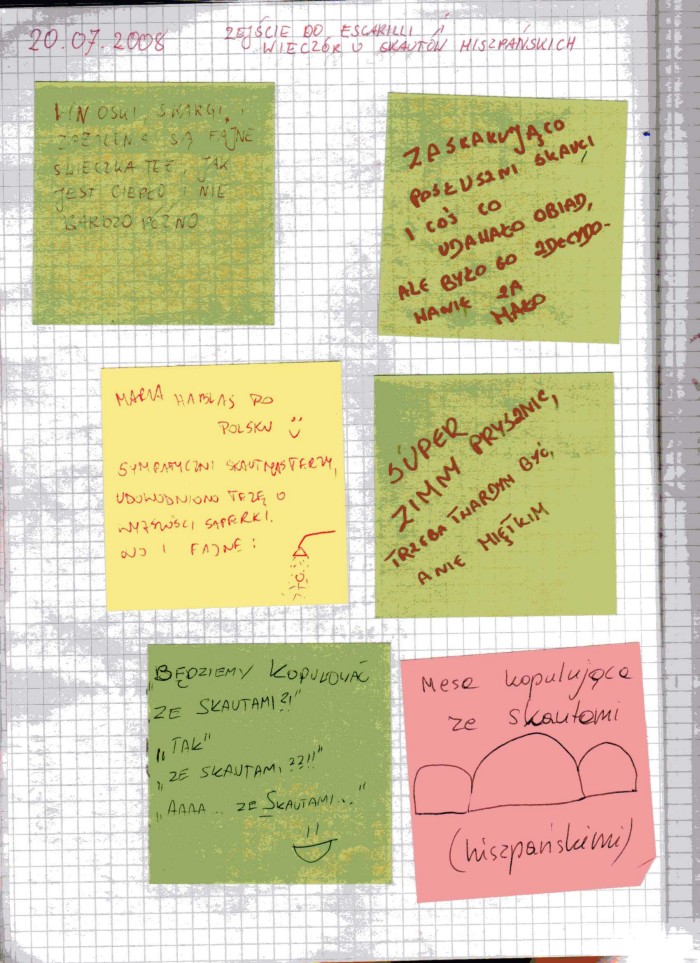 20.07.2008
ZEJŚCIE DO ESCARILLI
WIECZÓR U SKAUTÓW HISZPAŃSKICH
WNIOSKI, SKARGI, I
ZAŻALENIA SĄ FAJNE
ŚWIECZKA TEŻ, JAK
JEST CIEPŁO I NIE
BARDZO PÓŹNO
ZASKAKUJĄCO
POSŁUSZNI SKAUCI,
I COŚ CO
UDAWAŁO OBIAD,
ALE BYŁO GO ZDECYDO-
WANIE ZA
MAŁO
MARIA HABLAŚ PO
POLSKU
SYMPATYCZNI SKAUTMASTERZY,
UDOWODNIONO TEZĘ O
WYŻSZOŚCI SAPERKI.
NO I FAJNE:
SUPER
ZIMNY PRYSZNIC,
TRZEBA TWARDYM BYĆ,
A NIE MIĘTKIM
„BĘDZIEMY KOPULOWAĆ
ZE SKAUTAMI?!"
„TAK"
„ZE SKAUTAMI??!!"
„AAAA... ZE SKAUTAMI..."
Mesa kopulująca
ze skautami
(hiszpańskimi)